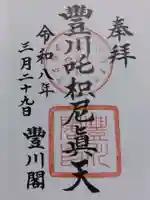 奉拜
豐川吒枳尼眞天
令和八年
三月二十九日
豐川閣